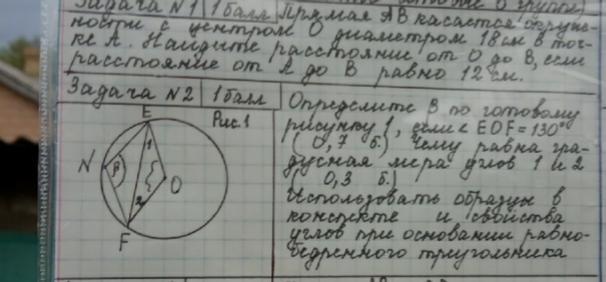 Задача №1 1 балл Прямая АВ касается окруж-
ности с центром О диаметром 18 см в точ-
ке А. Найдите расстояние от О до В, если
расстояние от А до В равно 12 см.
Задача №2 1 балл
Рис.1
E
N
β
1
2
O
F
Определите β по готовому
рисунку 1, если < EOF = 130°
(0,7 б.) Чему равна гра-
дусная мера углов 1 и 2
0,3 б.)
Использовать образцы в
конспекте и свойства
углов при основании равно-
бедренного треугольника